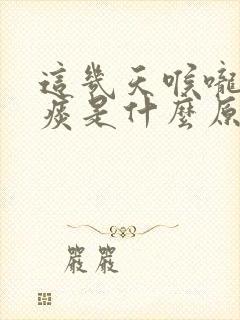 這幾天喉嚨
痰是什麼原
嚴嚴